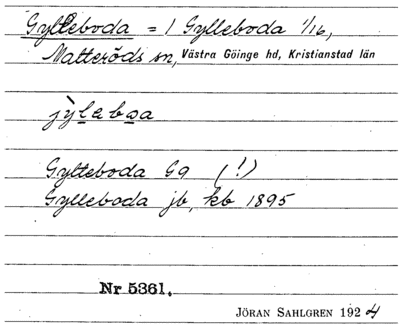 Gylleboda = 1 Gylleboda 1/16,
Matteröds sn, Västra Göinge hd, Kristianstad län
jỳlaboa
Gylteboda G9 (!)
Gylleboda jb, kb 1895
Nr 5361.
JÖRAN SAHLGREN 1924